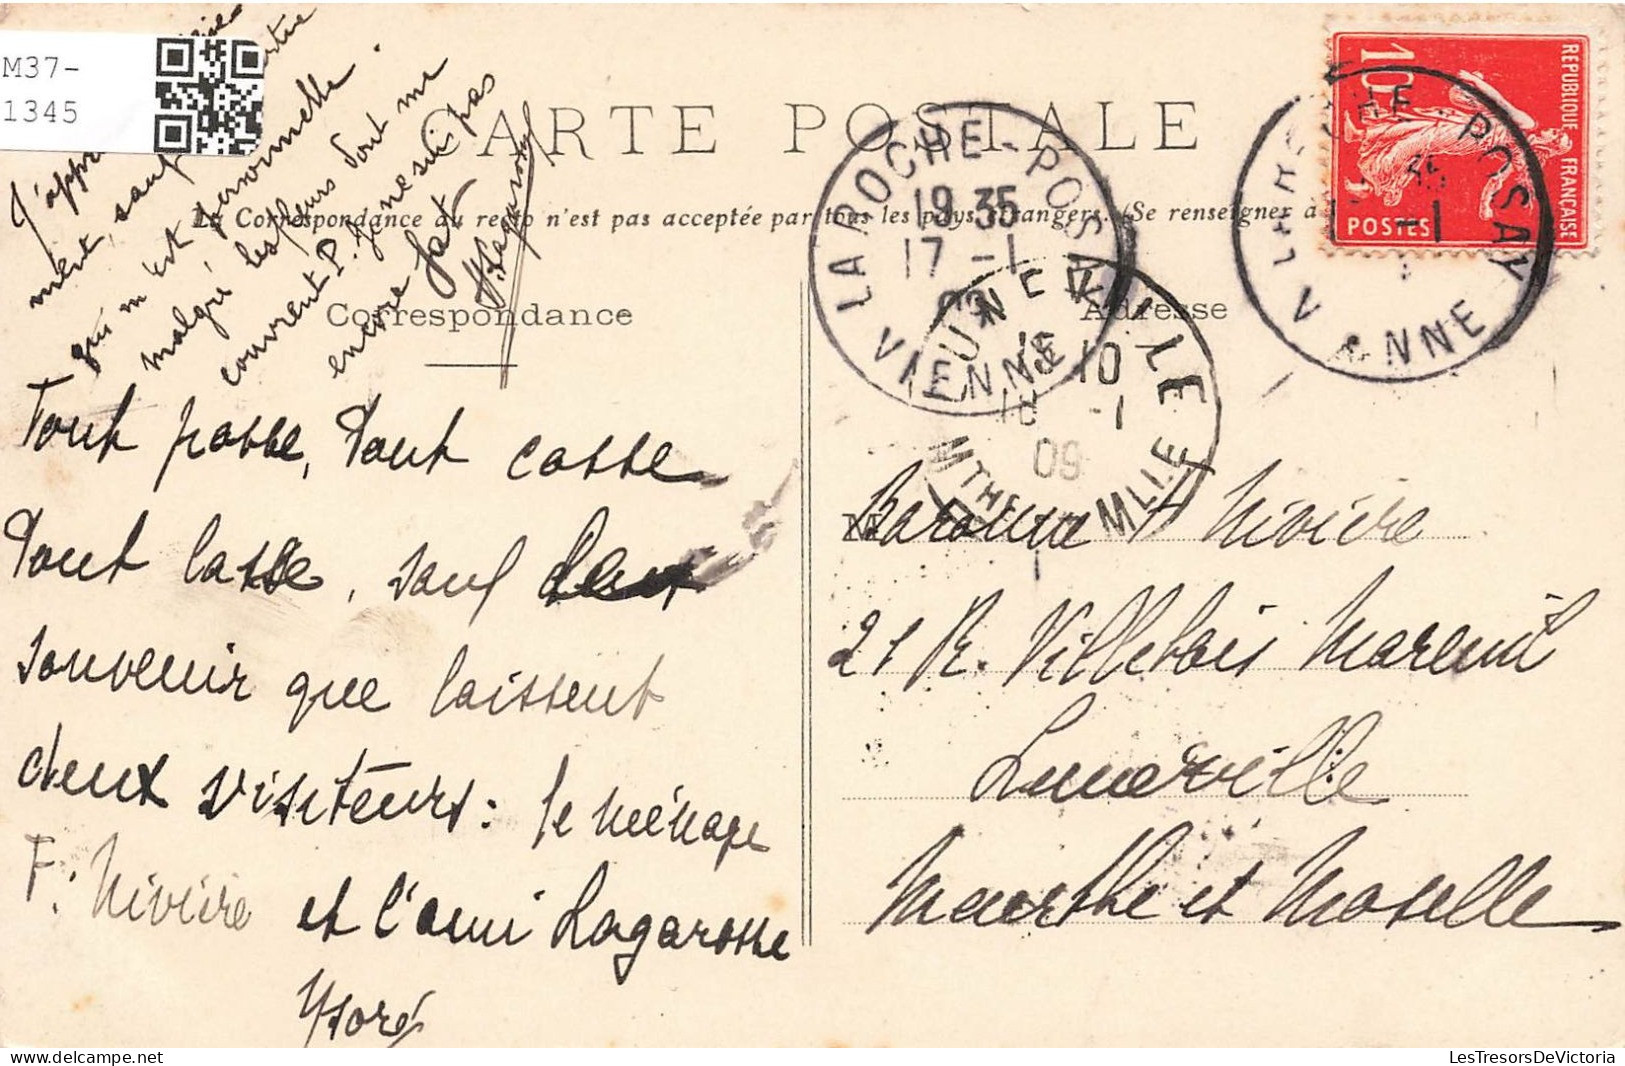 M37-
1345
CARTE POSTALE
La Correspondance au recto n'est pas acceptée par tous les pays étrangers. (Se renseigner à
Correspondance
Adresse
REPUBLIQUE FRANÇAISE
10
POSTES
LA ROCHE-POSAY
19 35
17 -1
09
VIENNE
LUNEVILLE
10
18 -1
09
MTHE ET MLLE
LA ROCHE-POSAY
35
-1
VIENNE
J'appr
ment, sauf
qui m'est personnelle.
malgré les fleurs dont me
couvrent P. Je ne suis pas
encore fat.
H. Lagarosse
Tout passe, Tout casse
Tout lasse, sauf le
souvenir que laissent
deux visiteurs : le ménage
F. Nivière et l'ami Lagarosse
Ysoré
M
Baronne F Nivière
21 R. Villebois Mareuil
Luneville
Meurthe et Moselle
LesTresorsDeVictoria